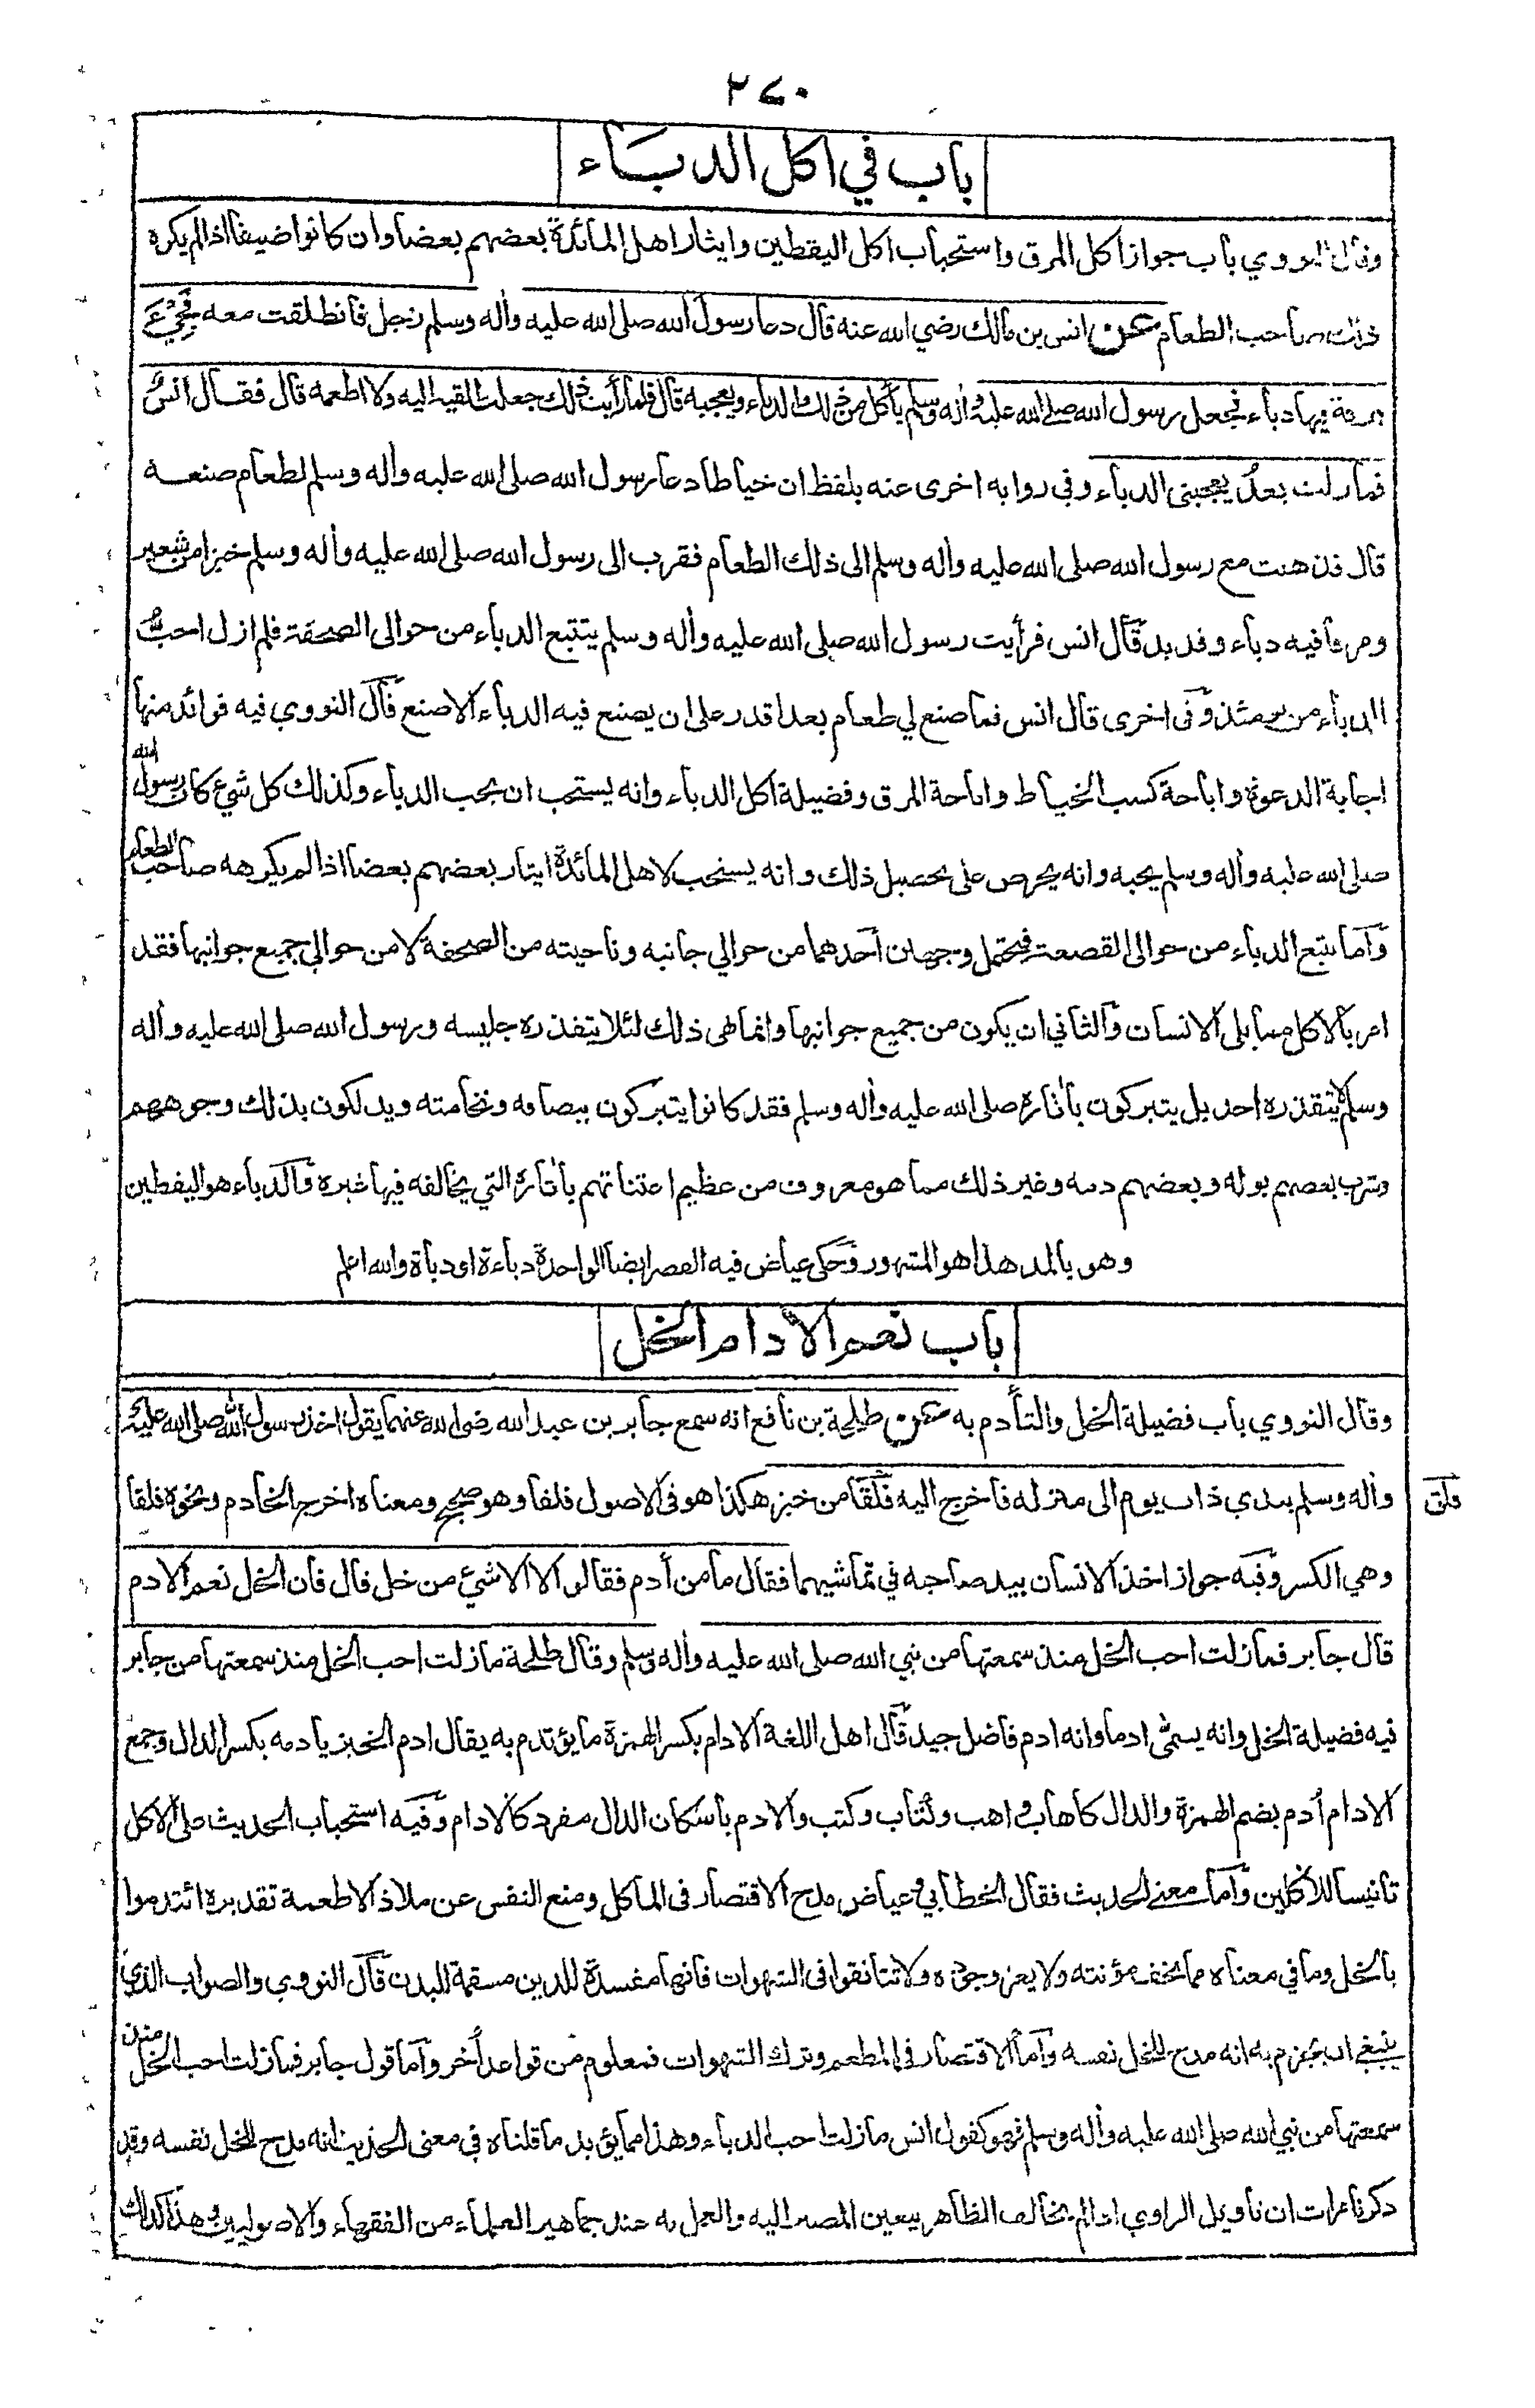 ٢٧٠
باب في اكل الدباء
وقال النووي باب جواز اكل المرق واستحباب اكل اليقطين وايثار اهل المائدة بعضهم بعضا وان كانوا ضيفا اذا لم يكره
ذلك صاحب الطعام عن انس بن مالك رضي الله عنه قال دعا رسول الله صلى الله عليه وأله وسلم رجل فانطلقت معه فجيء
بمرقة فيها دباء فجعل رسول الله صلى الله عليه وأله وسلم يأكل من ذلك الدباء ويعجبه قال فلما رأيت ذلك جعلت القيه اليه ولا اطعمه قال فقال انس
فما زلت بعد يعجبني الدباء وفي رواية اخرى عنه بلفظ ان خياطا دعا رسول الله صلى الله عليه وأله وسلم لطعام صنعه
قال فذهبت مع رسول الله صلى الله عليه وأله وسلم الى ذلك الطعام فقرب الى رسول الله صلى الله عليه وأله وسلم خبزا من شعير
ومرقا فيه دباء وقديد قال انس فرأيت رسول الله صلى الله عليه وأله وسلم يتتبع الدباء من حوالى الصحفة فلم ازل احب
الدباء من يومئذ وفى اخرى قال انس فما صنع لي طعام بعد اقدر على ان يصنع فيه الدباء الا صنع قال النووي فيه فوائد منها
اجابة الدعوة واباحة كسب الخياط واباحة المرق وفضيلة اكل الدباء وانه يستحب ان يحب الدباء وكذلك كل شيء كان رسول الله
صلى الله عليه وأله وسلم يحبه وانه يحرص على تحصيل ذلك وانه يستحب لاهل المائدة ايثار بعضهم بعضا اذا لم يكرهه صاحب الطعام
وأما تتبع الدباء من حوالى القصعة فيحتمل وجهين أحدهما من حوالي جانبه وناحيته من الصحفة لا من حوالي جميع جوانبها فقد
امر بالاكل مما يلى الانسان والثاني ان يكون من جميع جوانبها وانما نهى ذلك لئلا يتقذره جليسه ورسول الله صلى الله عليه وأله
وسلم لا يتقذره احد بل يتبركون بأثاره صلى الله عليه وأله وسلم فقد كانوا يتبركون ببصاقه ونخامته ويدلكون بذلك وجوههم
وشرب بعضهم بوله وبعضهم دمه وغير ذلك مما هو معروف من عظيم اعتنائهم بأثاره التي يخالفه فيها غيره والدباء هو اليقطين
وهو بالمد هذا هو المشهور وحكى عياض فيه القصر ايضا الواحدة دباءة او دباة والله اعلم
باب نعم الادام الخل
وقال النووي باب فضيلة الخل والتأدم به عن طلحة بن نافع انه سمع جابر بن عبد الله رضي الله عنهما يقول اخذ رسول الله صلى الله عليه
وأله وسلم بيدي ذات يوم الى منزله فاخرج اليه فلقا من خبز هكذا هو فى الاصول فلقا وهو صحيح ومعناه اخرج الخادم ونحوه فلقا
فلق
وهي الكسر وفيه جواز اخذ الانسان بيد صاحبه في تماشيهما فقال ما من أدم فقالوا لا الا شيء من خل قال فان الخل نعم الادم
قال جابر فما زلت احب الخل منذ سمعتها من نبي الله صلى الله عليه وأله وسلم وقال طلحة ما زلت احب الخل منذ سمعتها من جابر
فيه فضيلة الخل وانه يسمى ادما وانه ادم فاضل جيد قال اهل اللغة الادام بكسر الهمزة ما يؤتدم به يقال ادم الخبز يادمه بكسر الدال وجمع
الادام أدم بضم الهمزة والدال كاهاب واهب وكتاب وكتب والادم باسكان الدال مفرد كالادام وفيه استحباب الحديث على الاكل
تانيسا للأكلين وأما معنى الحديث فقال الخطابي وعياض مدح الاقتصار فى المأكل ومنع النفس عن ملاذ الاطعمة تقديره ائتدموا
بالخل وما في معناه مما تخف مؤنته ولا يعز وجوده ولا تتأنقوا فى الشهوات فانها مفسدة للدين مسقمة للبدن قال النووي والصواب الذي
ينبغي ان يجزم به انه مدح للخل نفسه وأما الاقتصار في المطعم وترك الشهوات فمعلوم من قواعد أخر وأما قول جابر فما زلت احب الخل منذ
سمعتها من نبي الله صلى الله عليه وأله وسلم فهو كقول انس ما زلت احب الدباء وهذا مما يؤيد ما قلناه في معنى الحديث انه مدح للخل نفسه وقد
ذكرنا مرات ان تأويل الراوي اذا لم يخالف الظاهر يتعين المصير اليه والعمل به عند جماهير العلماء من الفقهاء والاصوليين وهذا كذلك